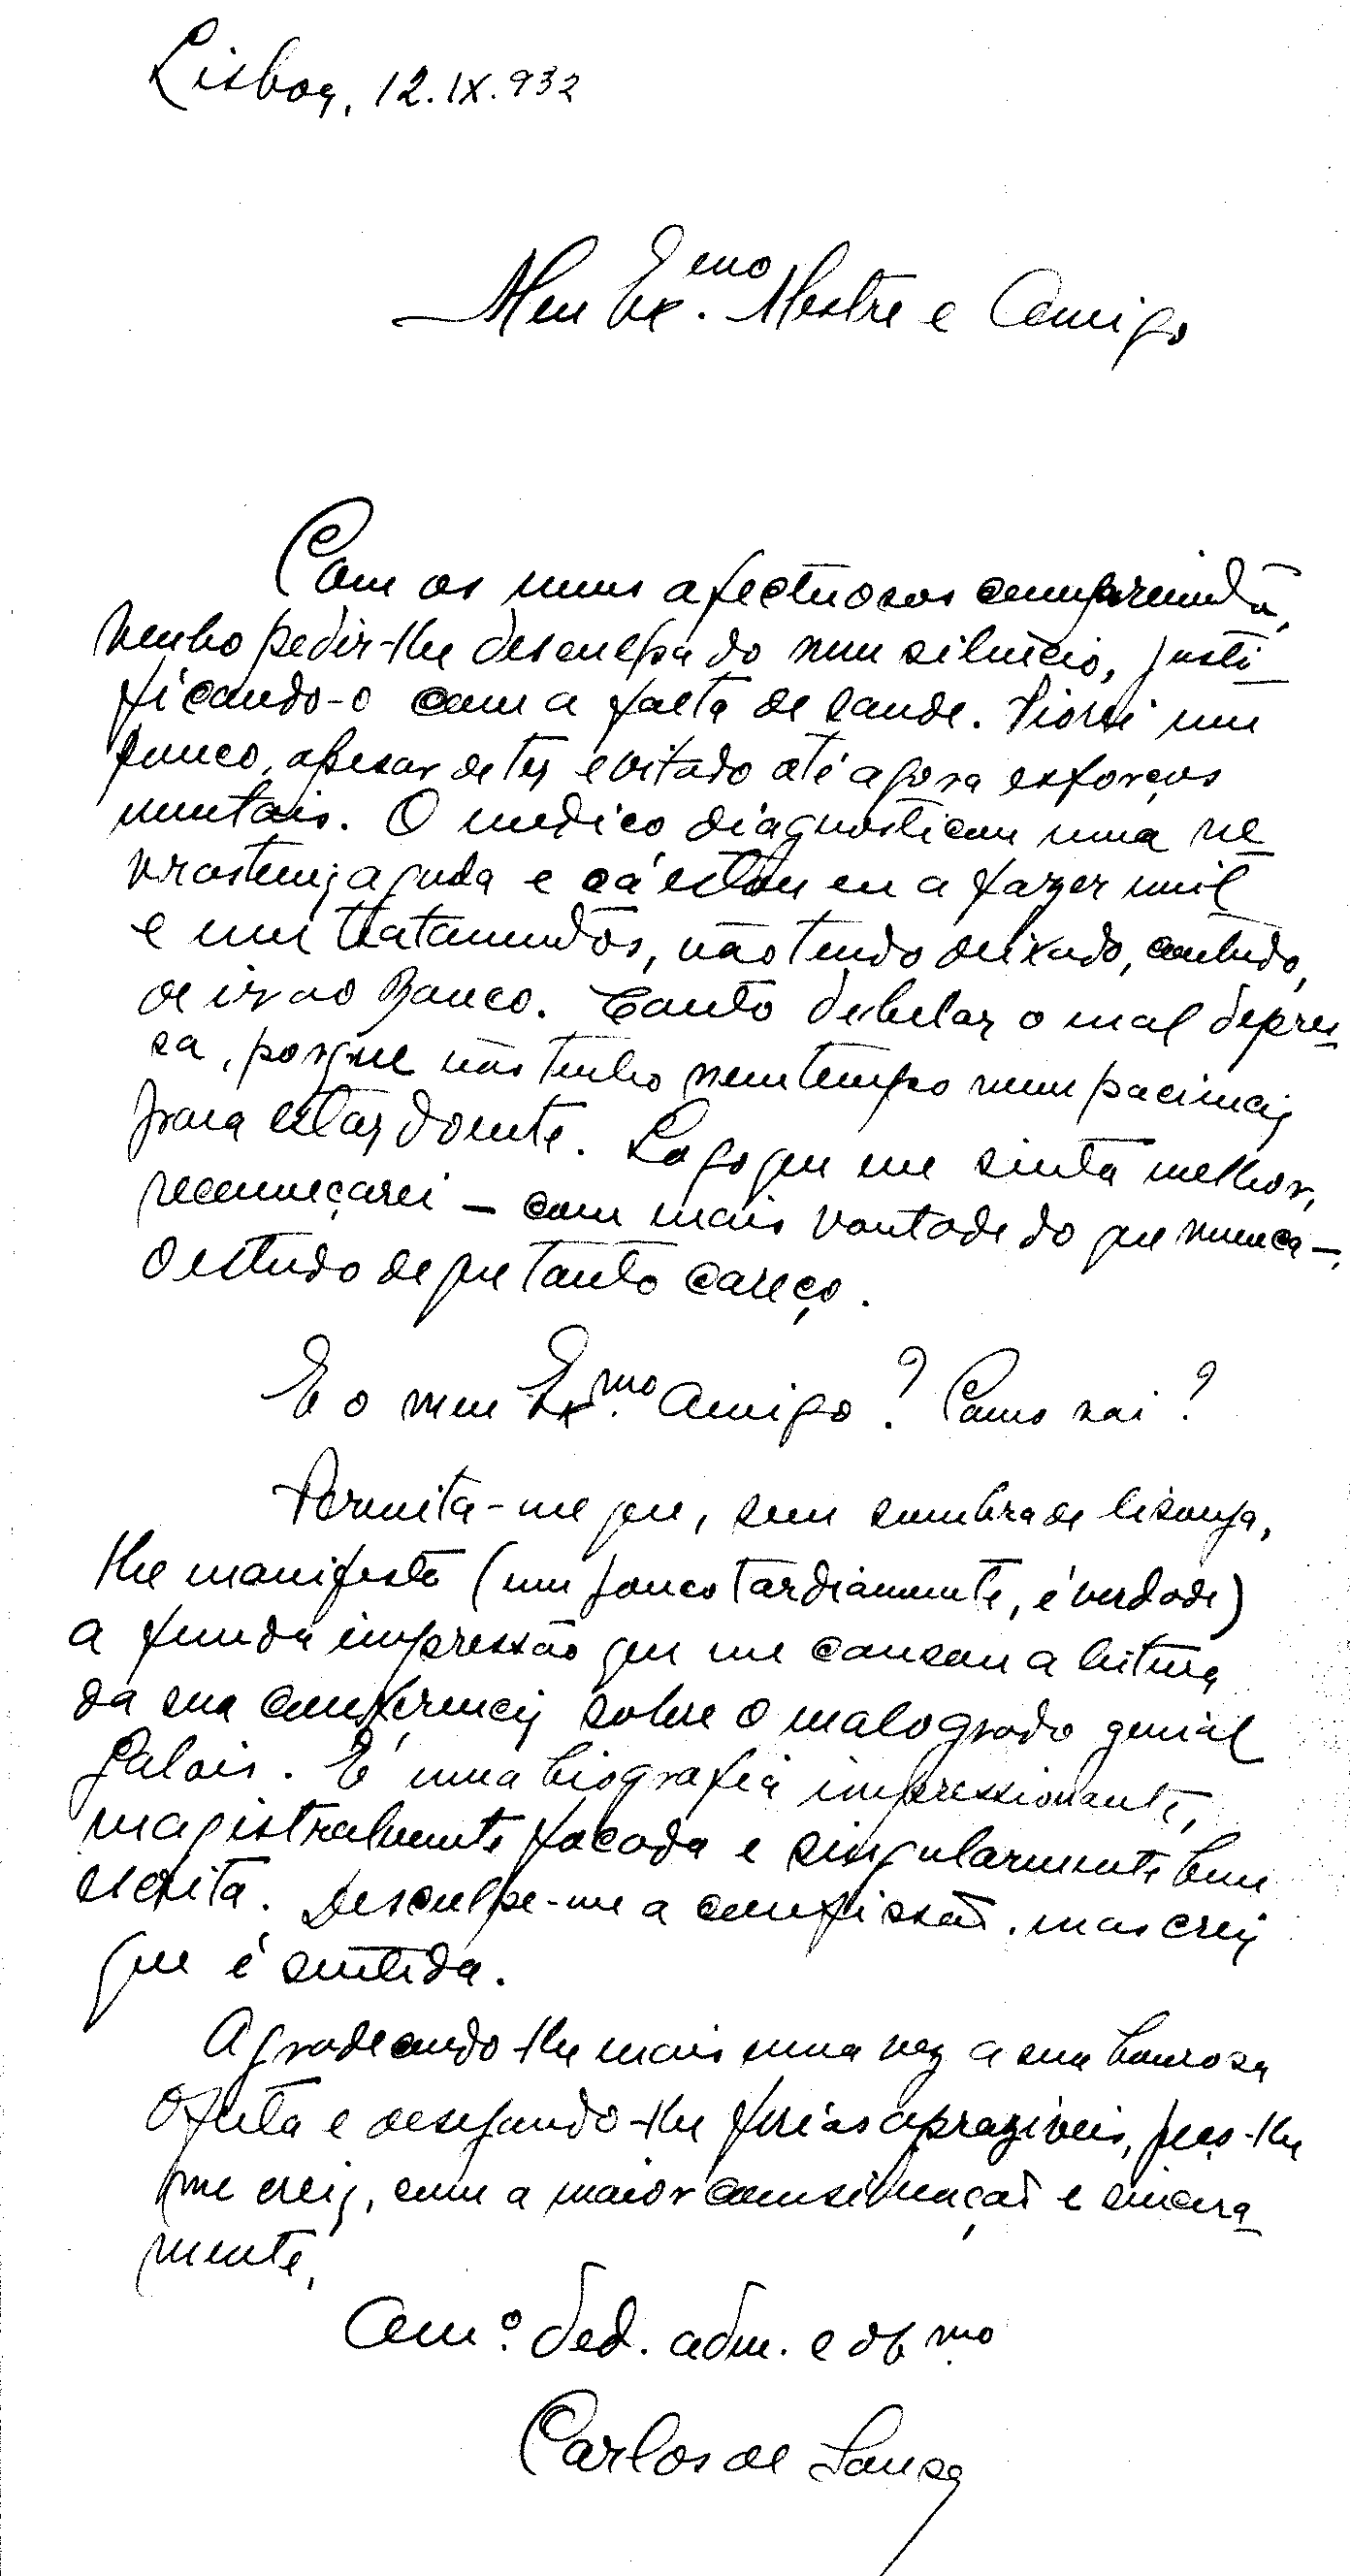 Lisboa, 12.IX.932
Meu Ex.mo Mestre e Amigo
Com os meus afectuosos cumprimentos,
venho pedir-lhe desculpa do meu silêncio, justi-
ficando-o com a falta de saude. Piorei um
pouco, apesar de ter evitado até agora esforços
mentais. O medico diagnosticou uma ne-
vrastenia aguda e cá estou eu a fazer mil
e um tratamentos, não tendo deixado, contudo,
de ir ao Banco. Tento debelar o mal depres-
sa, porque não tenho nem tempo nem paciencia
para estar doente. Logo que me sinta melhor,
recomeçarei – com mais vontade do que nunca –,
o estudo de que tanto careço.
E o meu Ex.mo Amigo? Como vai?
Permita-me que, sem sombra de lisonja,
lhe manifeste (um pouco tardiamente, é verdade)
a funda impressão que me causou a leitura
da sua conferencia sobre o malogrado genial
Galois. É uma biografia impressionante,
magistralmente focada e singularmente bem
escrita. Desculpe-me a confissão, mas creia
que é sentida.
Agradecendo-lhe mais uma vez a sua honrosa
oferta e desejando-lhe férias apraziveis, peço-lhe
me creia, com a maior consideração e sincera-
mente,
Am.º ded. adm. e ob.mo
Carlos de Sousa